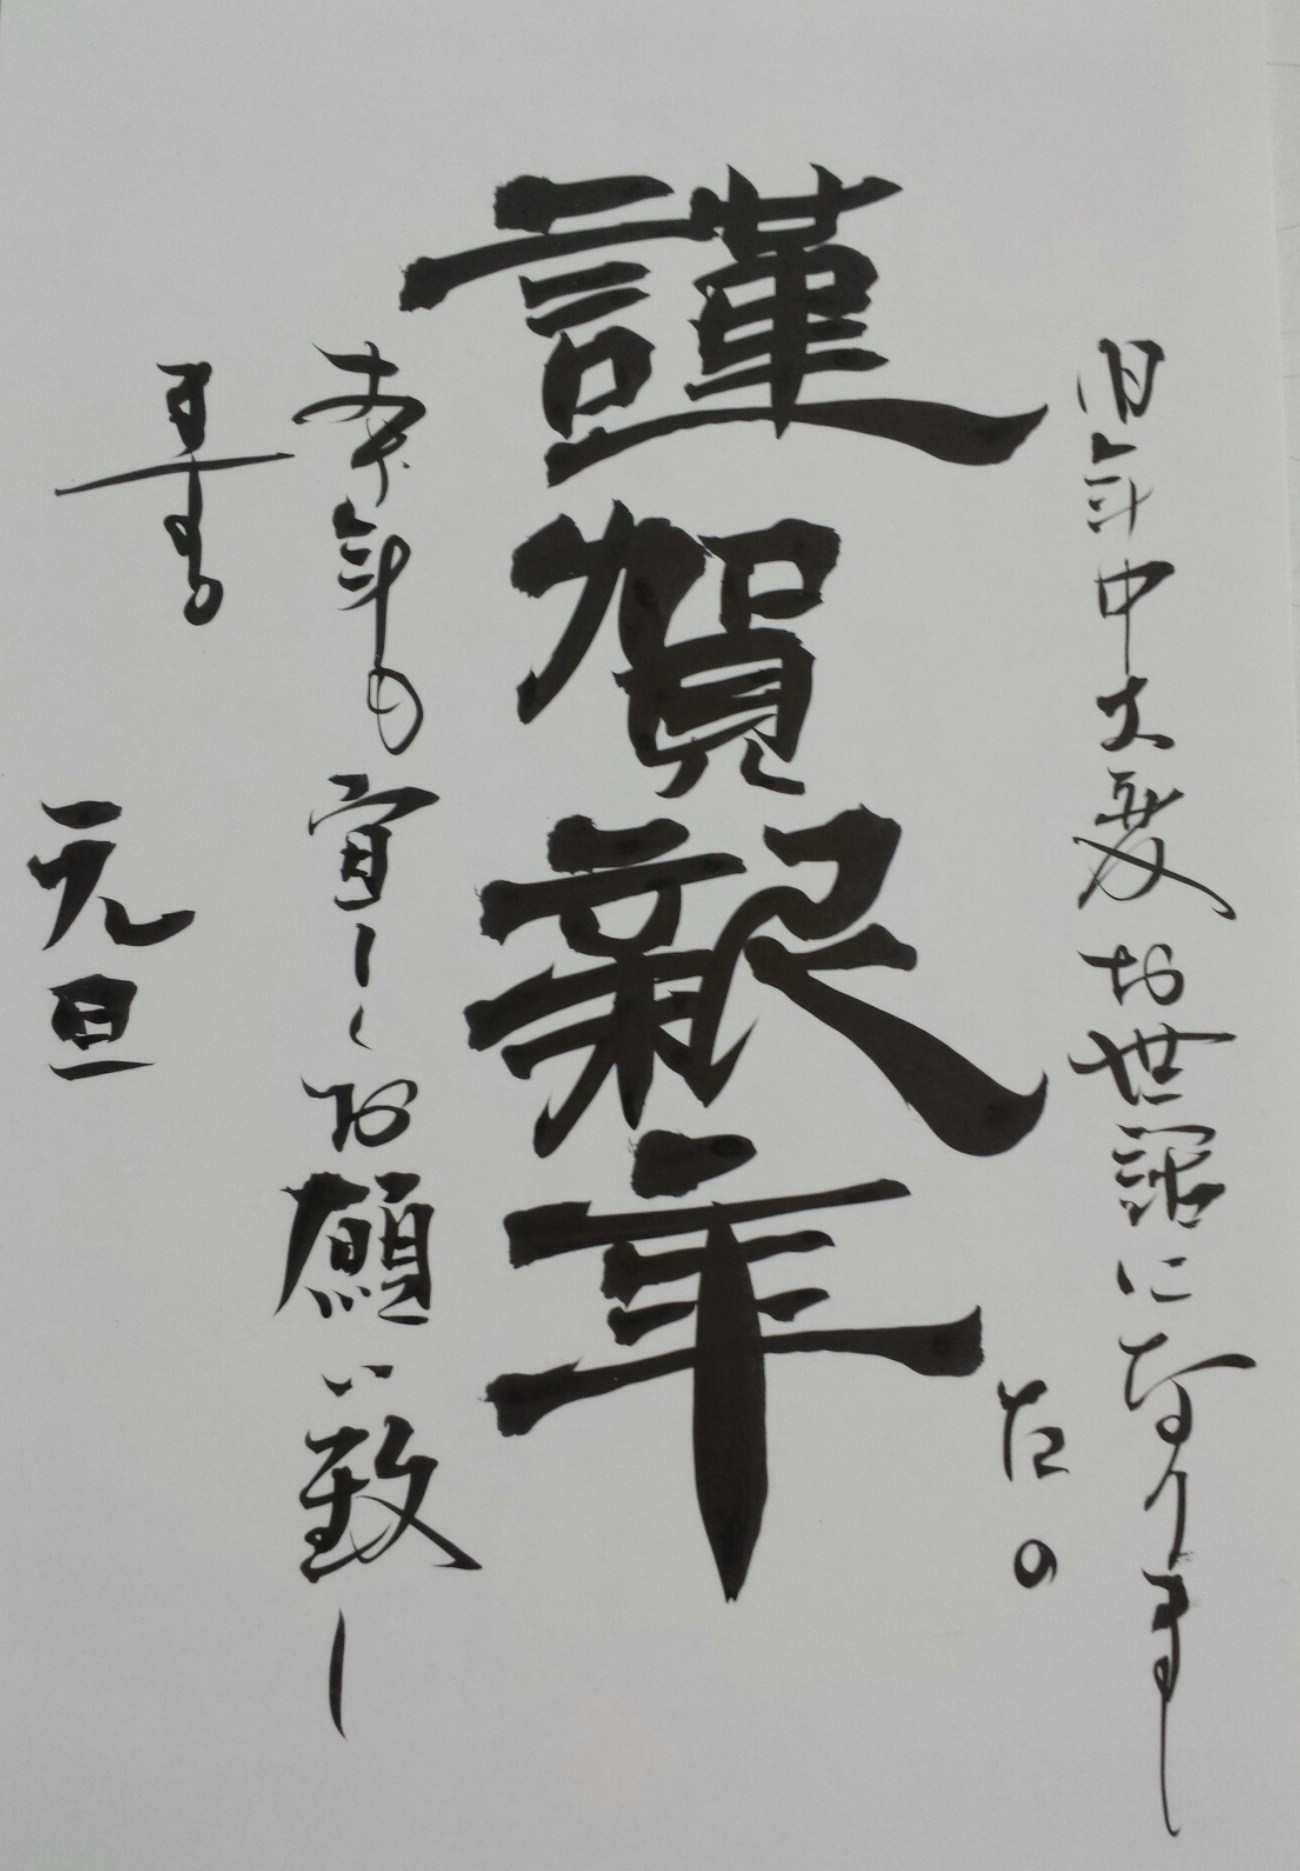 旧年中大変お世話になりまし
た。
謹賀新年
本年も宜しくお願い致し
ます。
元旦